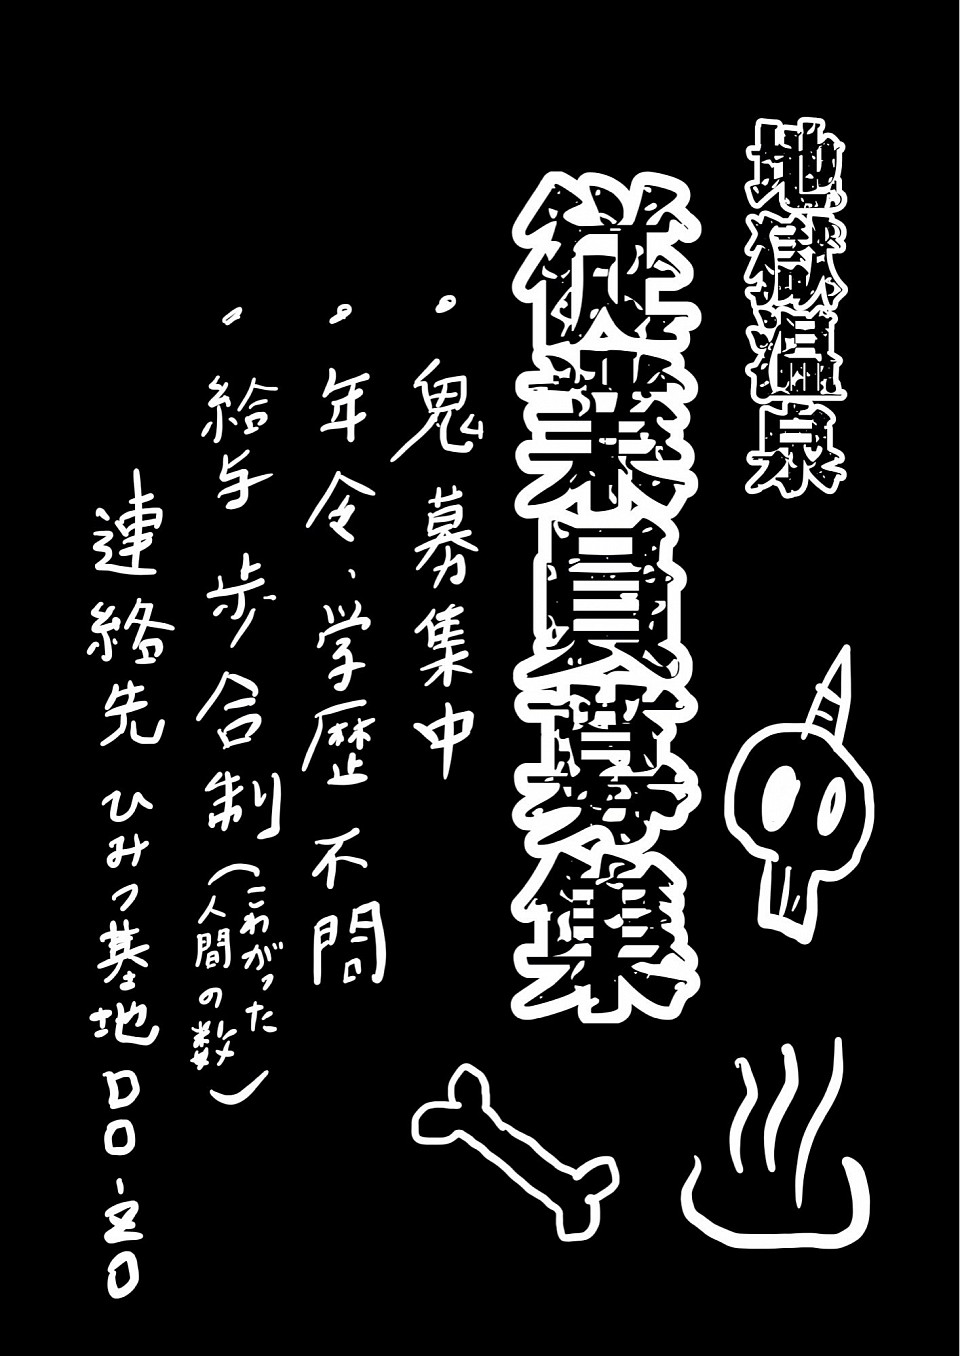 地獄温泉
従業員募集
・鬼募集中
・年令、学歴不問
・給与歩合制(こわがった人間の数)
連絡先 ひみつ基地